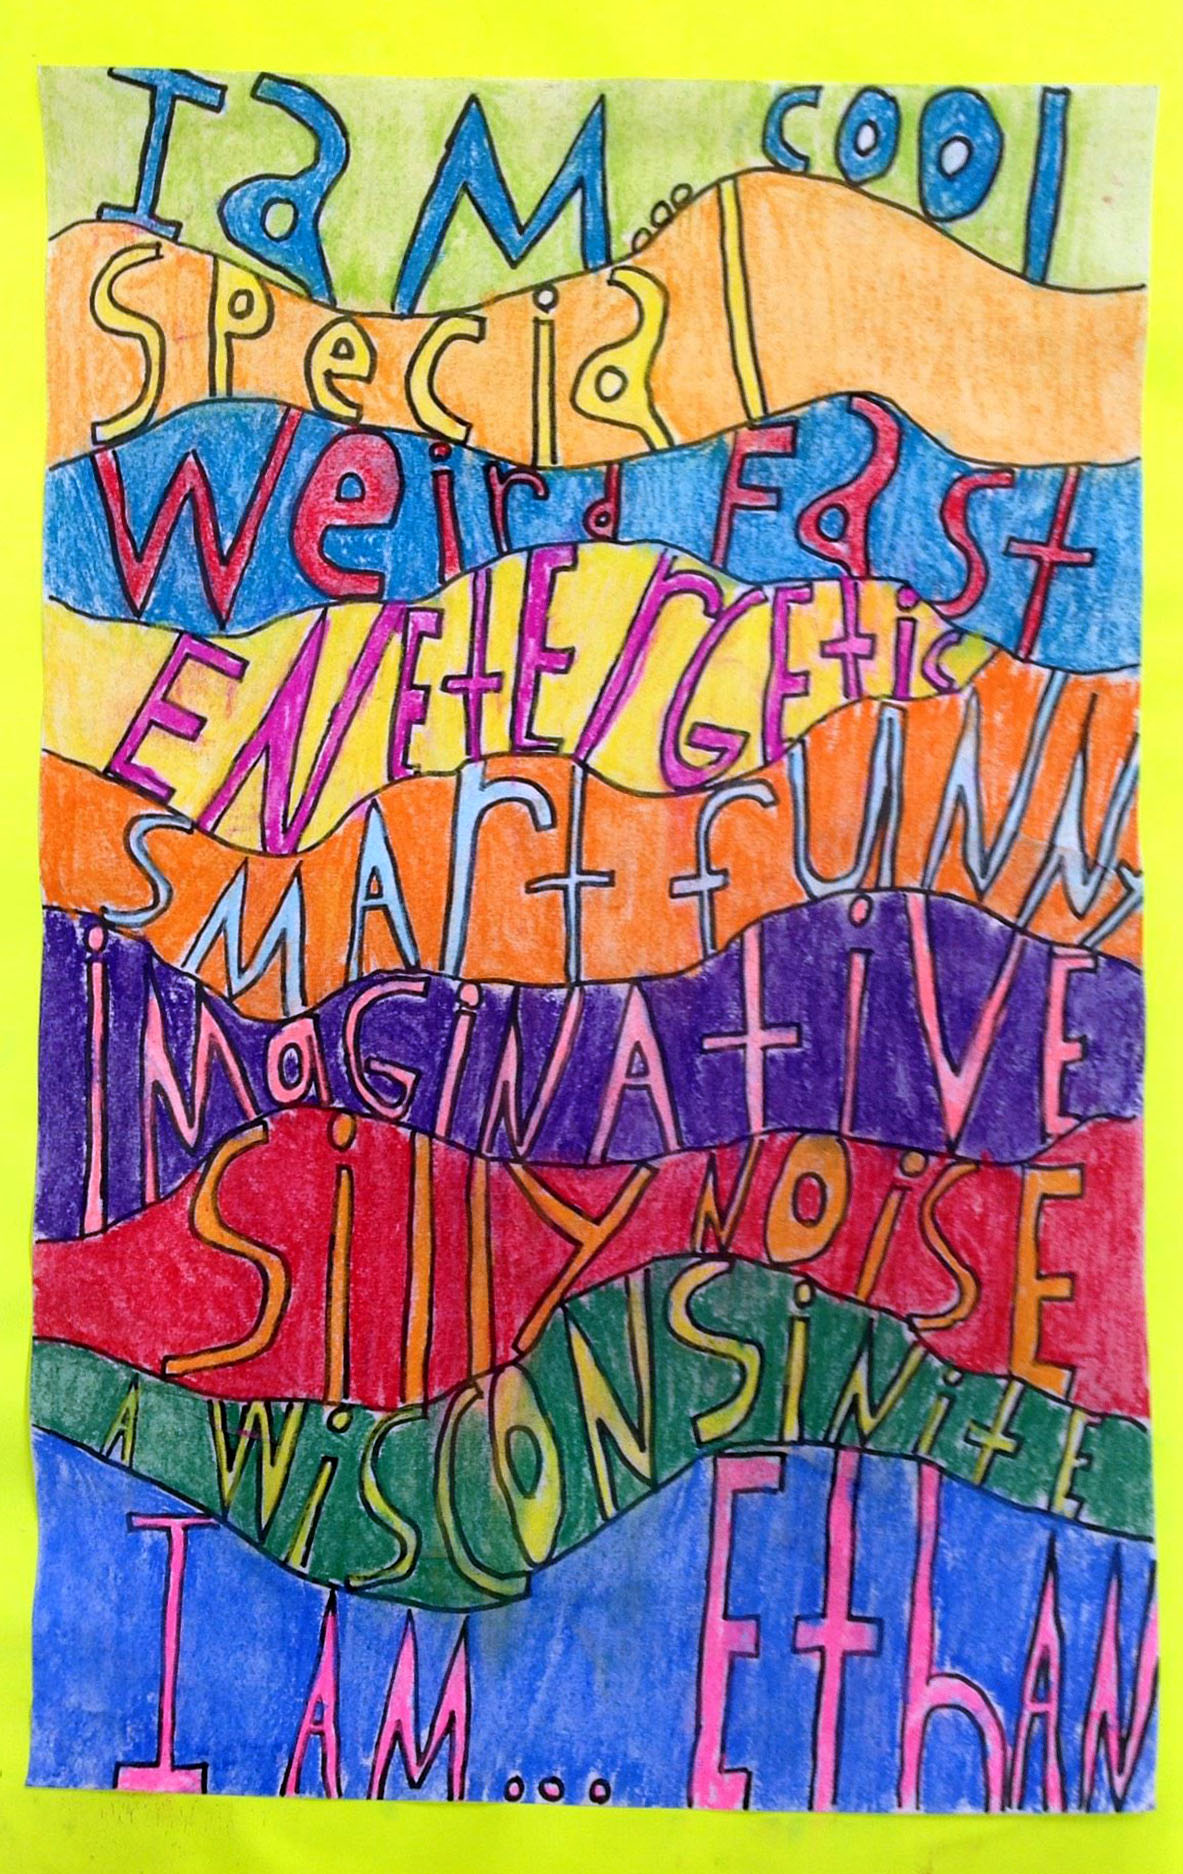 I aM ... cool
Special
Weird Fast
ENEtErGEtic
sMArt fUNNy
iMaGiNAtiVE
SillY NOiSE
A WiSCONSiNitE
I AM... EthAN